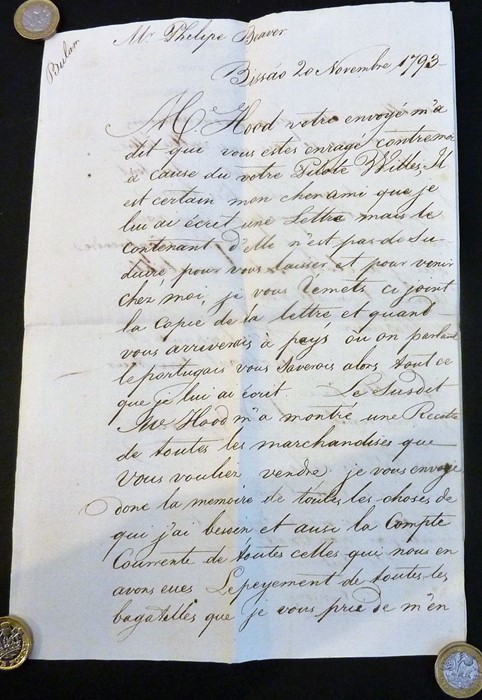 Mr Phelipe Beaver
Bulam
Bissáo 20 Novembre 1793
Mr Hood votre envoyé m'a
dit que vous estes enragé contre moi
a cause du votre Pilote Willes. Il
est certain mon cher ami que je
lui ai écrit une Lettre mais le
contenant d'elle n'est pas de Se-
duire pour vous laisser et pour venir
chez moi, je vous remets ci joint
la Capie de la lettre et quand
vous arriverais à pays où on parlant
le portugais vous Saverois alors tout ce
que je lui ai écrit Le Susdit
Mr. Hood m'a montré une Recette
de toutes les marchandises que
vous vouliez vendre, je vous envoye
donc la memoire de toutes les choses de
qui j'ai besoin et ausi la Compte
Courrente de toutes celles qui nous en
avons eues Le peyement de toutes les
bagatelles que je vous prie de m'en